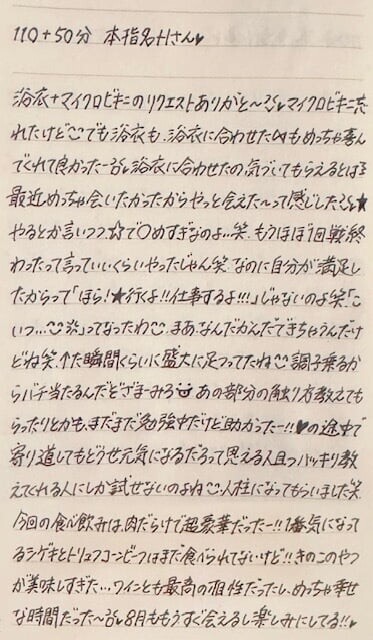 110+50分 本指名Hさん♥
浴衣+マイクロビキニのリクエストありがと〜♥マイクロビキニ忘
れたけど でも浴衣も、浴衣に合わせた もめっちゃ喜ん
でくれて良かった〜 浴衣に合わせたの気づいてもらえるとは
最近めっちゃ会いたかったからやっと会えた〜って感じした ★
やるとか言いつつ☆で〇めすぎなのよ…笑 もうほぼ1回戦終
わったって言っていいくらいやったじゃん笑 なのに自分が満足し
たからって「ほら!★行くよ!!仕事するよ!!!」じゃないのよ笑「こ
いつ… 」ってなったわ まあ、なんだかんだできちゃうんだけ
どね笑、↑た瞬間くらいに盛大に足つってたね 調子乗るか
らバチ当たるんだどざまーみろ あの部分の触り方教えても
らったりとかも、まだまだ勉強中だけど助かったー!!♥の途中で
寄り道してもどうせ元気になるだろって思える人且つハッキリ教
えてくれる人にしか試せないのよね 人柱になってもらいました笑
今回の食べ飲みは肉だらけで超豪華だったー!! 気になって
る とトリュフコンビーフはまだ食べられてないけど!!きのこのやつ
が美味しすぎた…ワインとも最高の相性だったし、めっちゃ幸せ
な時間だった〜 8月ももうすぐ会えるし楽しみにしてる!!♥